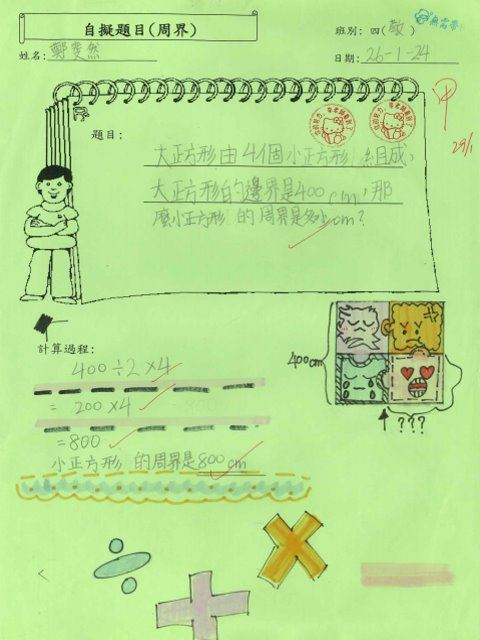 自擬題目(周界)
班別: 四(敬)
無需帶
姓名: 鄭斐然
日期: 26-1-24
題目:
大正方形由4個小正方形組成,
大正方形的邊界是400cm,那
麼小正方形的周界是多少cm?
29/1
計算過程:
400÷2×4
=200×4
=800
小正方形的周界是800cm
400cm
???